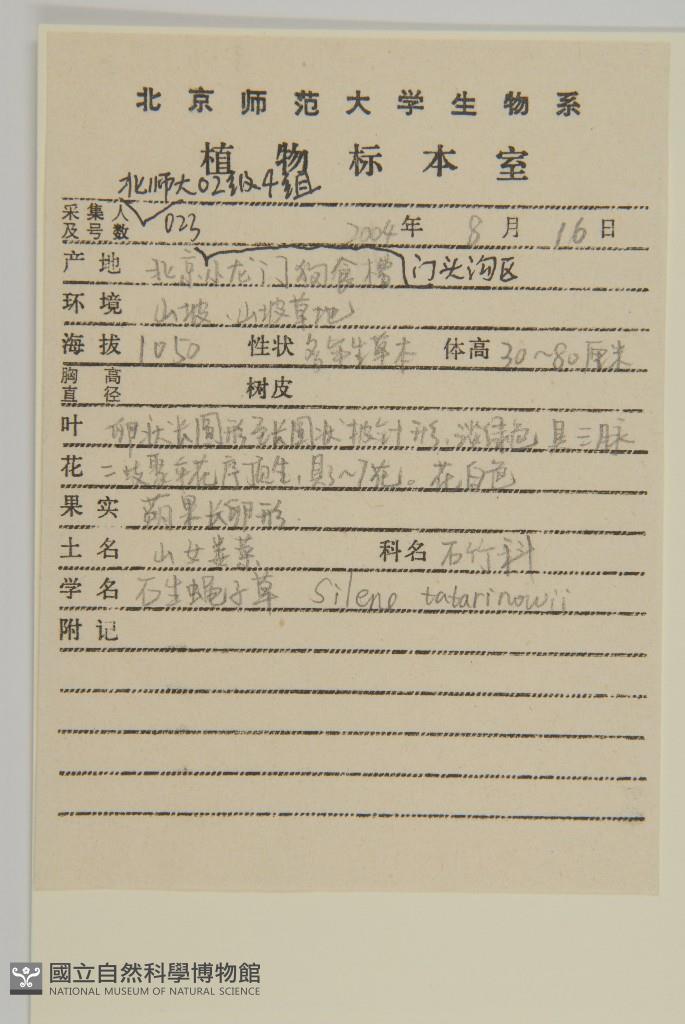 北京师范大学生物系
植物标本室
北师大02级4组
采集人及号数 023 2004年 8月 16日
产地 北京小龙门狗食槽 门头沟区
环境 山坡、山坡草地
海拔 1050 性状 多年生草本 体高 30~80厘米
胸高直径 树皮
叶 卵状长圆形至长圆状披针形,淡绿色,具三脉
花 二歧聚伞花序顶生,具3~7花。花白色
果实 蒴果长卵形
土名 山女娄菜 科名 石竹科
学名 石生蝇子草 Silene tatarinowii
附记
國立自然科學博物館
NATIONAL MUSEUM OF NATURAL SCIENCE